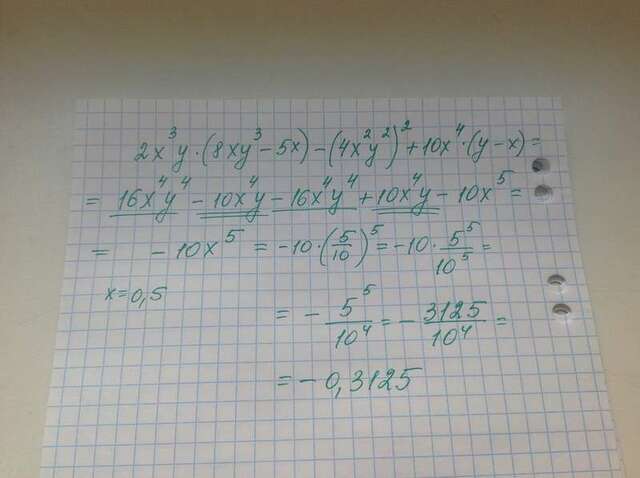 2x³y·(8xy³-5x)-(4x²y²)²+10x⁴·(y-x)=
=16x⁴y⁴-10x⁴y-16x⁴y⁴+10x⁴y-10x⁵=
= -10x⁵ = -10·(5/10)⁵ = -10·5⁵/10⁵ =
x=0,5
= -5⁵/10⁴ = -3125/10⁴ =
= -0,3125